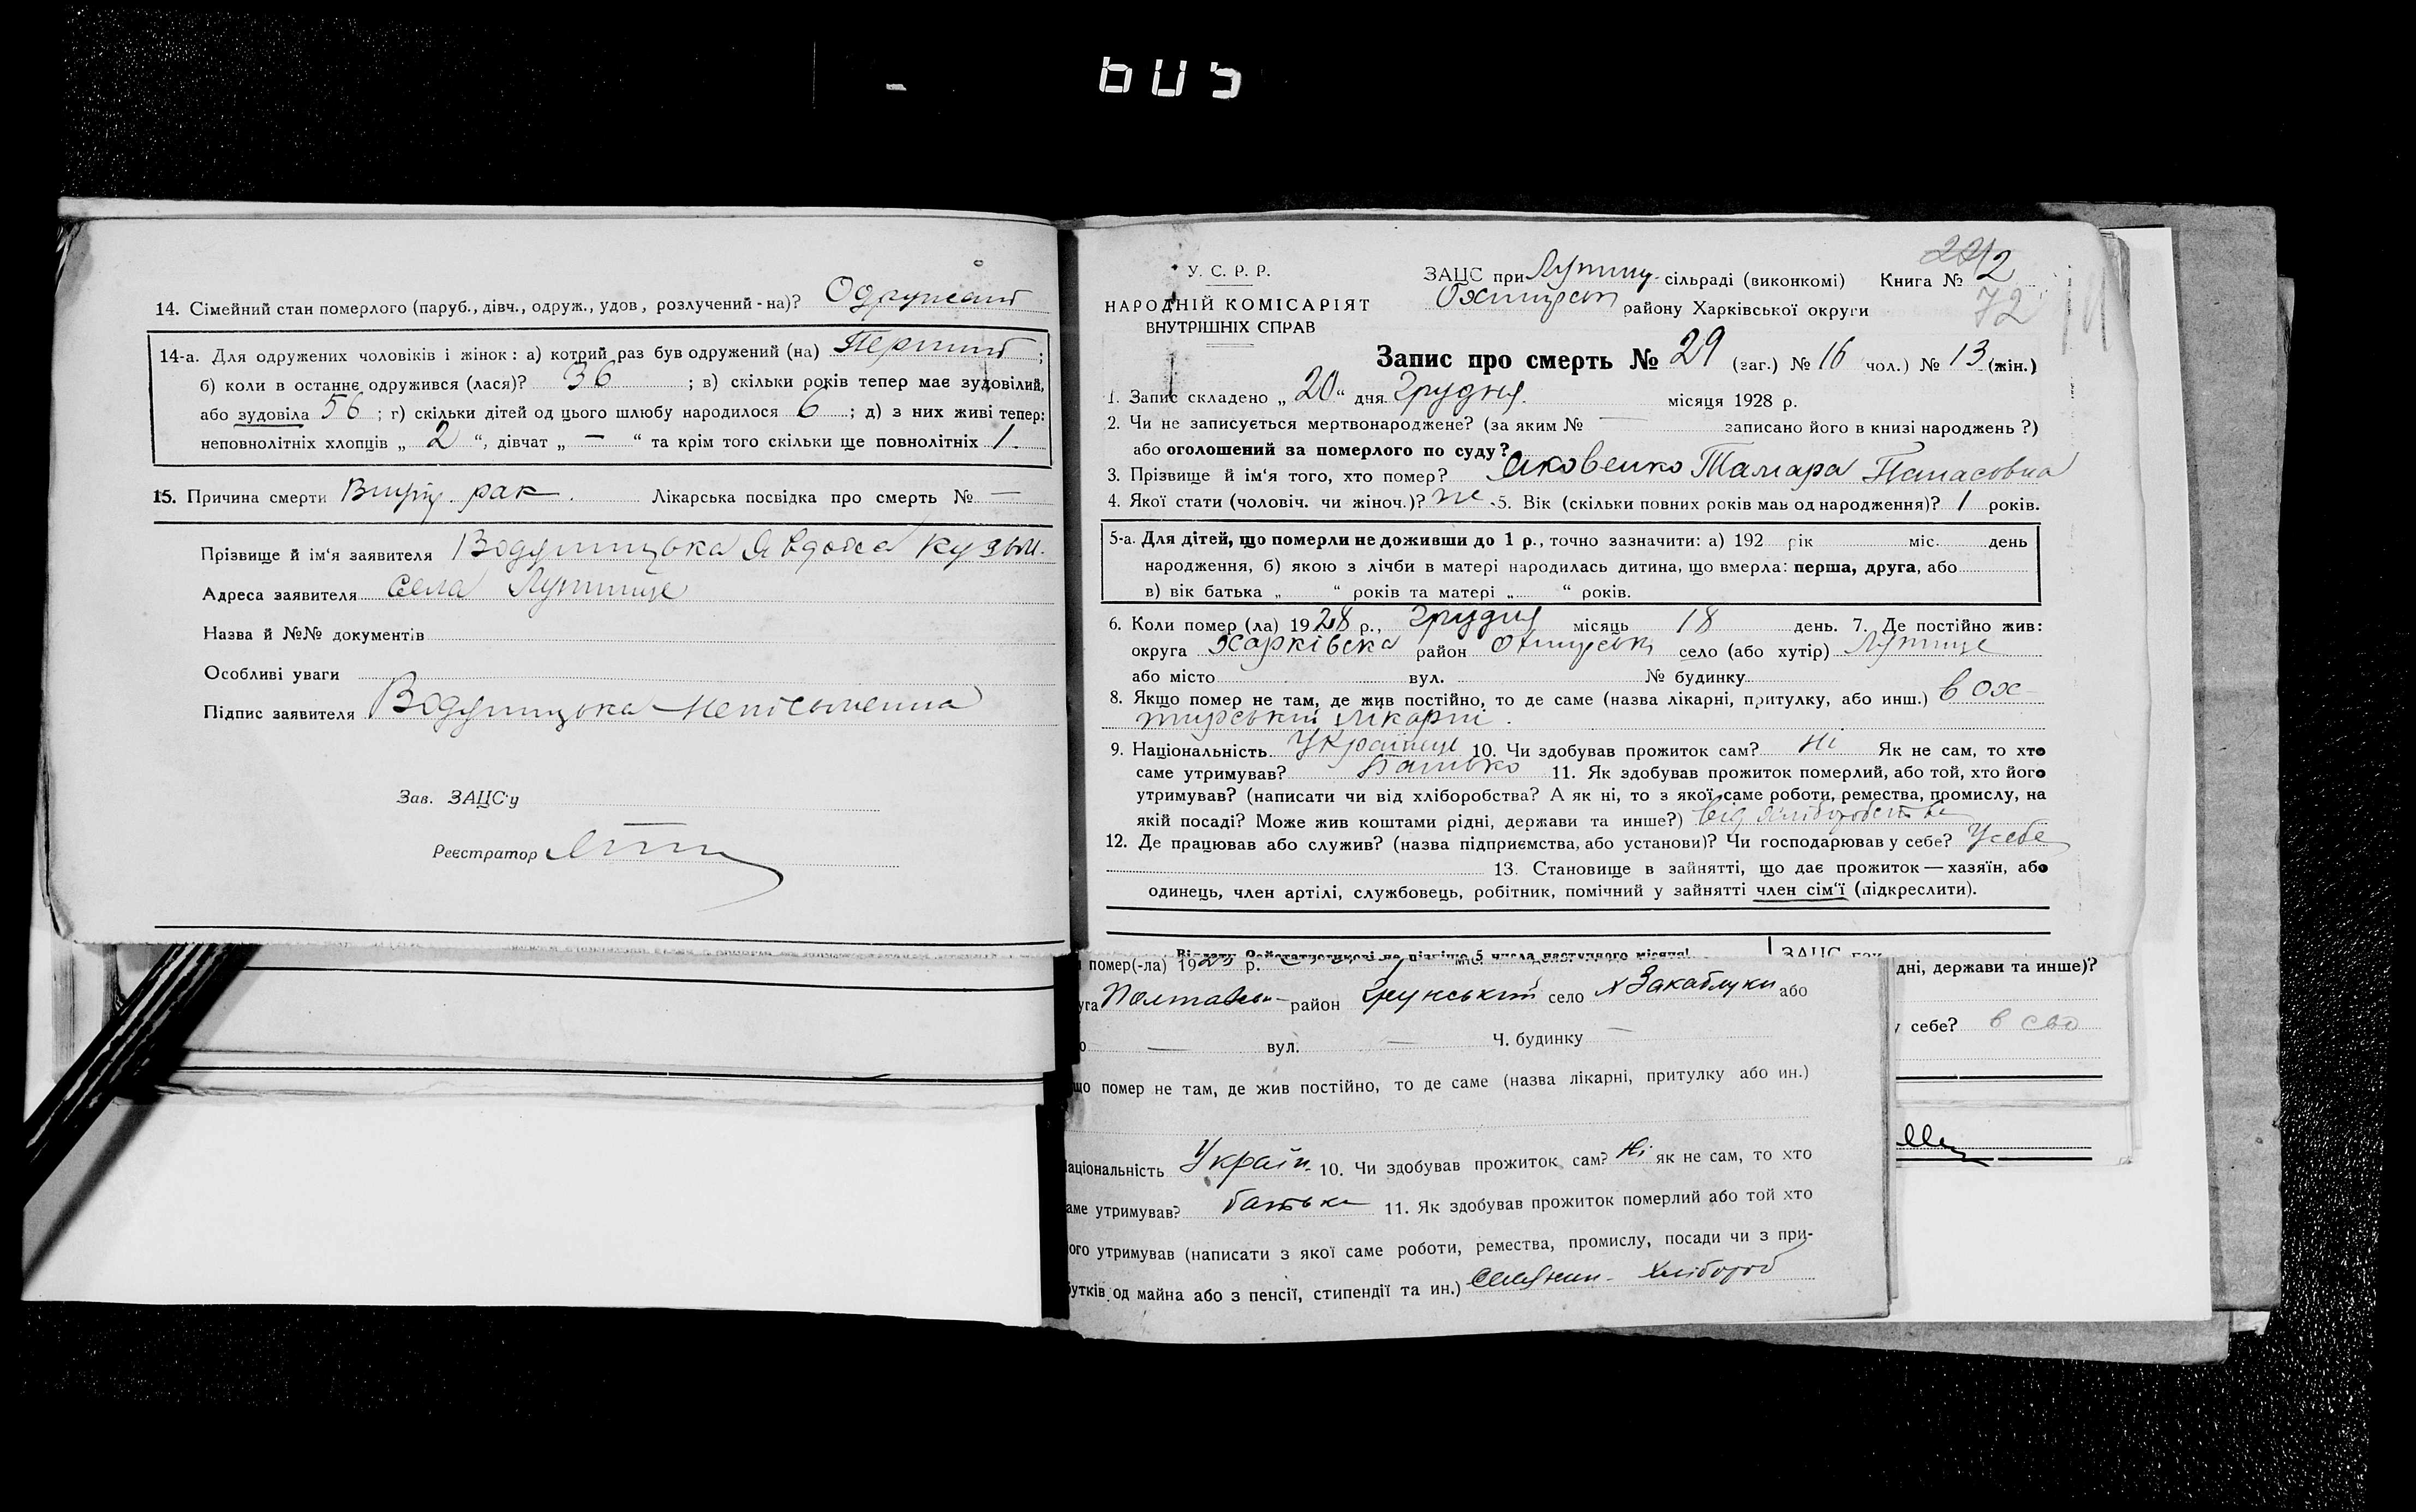 14. Сімейний стан померлого (паруб., дівч., одруж., удов, розлучений-на)? Одружений
14-а. Для одружених чоловіків і жінок: а) котрий раз був одружений (на) Перший;
б) коли в останнє одружився (лася)? 36; в) скільки років тепер має зудовілий,
або зудовіла 56; г) скільки дітей од цього шлюбу народилося 6; д) з них живі тепер:
неповнолітніх хлопців „ 2 “, дівчат „ — “ та крім того скільки ще повнолітніх 1
15. Причина смерти рак. Лікарська посвідка про смерть № —
Прізвище й ім'я заявителя Явдоха Кузьм.
Адреса заявителя села Лутище
Назва й №№ документів
Особливі уваги
Підпис заявителя неписьменна
Зав. ЗАЦС'у
Реєстратор
У. С. Р. Р.
НАРОДНІЙ КОМІСАРІЯТ
ВНУТРІШНІХ СПРАВ
ЗАЦС при Лутищ. сільраді (виконкомі) Книга № 2
Охтирськ району Харківської округи
72
Запис про смерть № 29 (заг.) № 16 чол.) № 13 (жін.)
1. Запис складено „ 20 “ дня Грудня місяця 1928 р.
2. Чи не записується мертвонароджене? (за яким № — записано його в книзі народжень ?)
або оголошений за померлого по суду?
3. Прізвище й ім'я того, хто помер? Яковенко Тамара Панасовна
4. Якої стати (чоловіч. чи жіноч.)? ж. 5. Вік (скільки повних років мав од народження)? 1 років.
5-а. Для дітей, що померли не доживши до 1 р., точно зазначити: а) 192 рік міс. день
народження, б) якою з лічби в матері народилась дитина, що вмерла: перша, друга, або
в) вік батька „ “ років та матері „ “ років.
6. Коли помер (ла) 1928 р., Грудня місяць 18 день. 7. Де постійно жив:
округа Харківська район Охтирськ село (або хутір) Лутище
або місто вул. № будинку
8. Якщо помер не там, де жив постійно, то де саме (назва лікарні, притулку, або инш.) в Ох-
тирській лікарні.
9. Національність Українце 10. Чи здобував прожиток сам? ні Як не сам, то хто
саме утримував? Батько 11. Як здобував прожиток померлий, або той, хто його
утримував? (написати чи від хліборобства? А як ні, то з якої саме роботи, ремества, промислу, на
якій посаді? Може жив коштами рідні, держави та инше?) від хліборобства
12. Де працював або служив? (назва підприємства, або установи)? Чи господарював у себе? У себе
13. Становище в зайнятті, що дає прожиток — хазяїн, або
одинець, член артілі, службовець, робітник, помічний у зайнятті член сім'ї (підкреслити).
помер(-ла) 192 р.
дні, держави та инше)?
уга район Грунський село х Закаблуки або
у себе? в сво
о — вул. — Ч. будинку —
що помер не там, де жив постійно, то де саме (назва лікарні, притулку або ин.)
аціональність Україн. 10. Чи здобував прожиток сам? Ні як не сам, то хто
аме утримував? батька 11. Як здобував прожиток померлий або той хто
ого утримував (написати з якої саме роботи, ремества, промислу, посади чи з при-
бутків од майна або з пенсії, стипендії та ин.) хлібороб